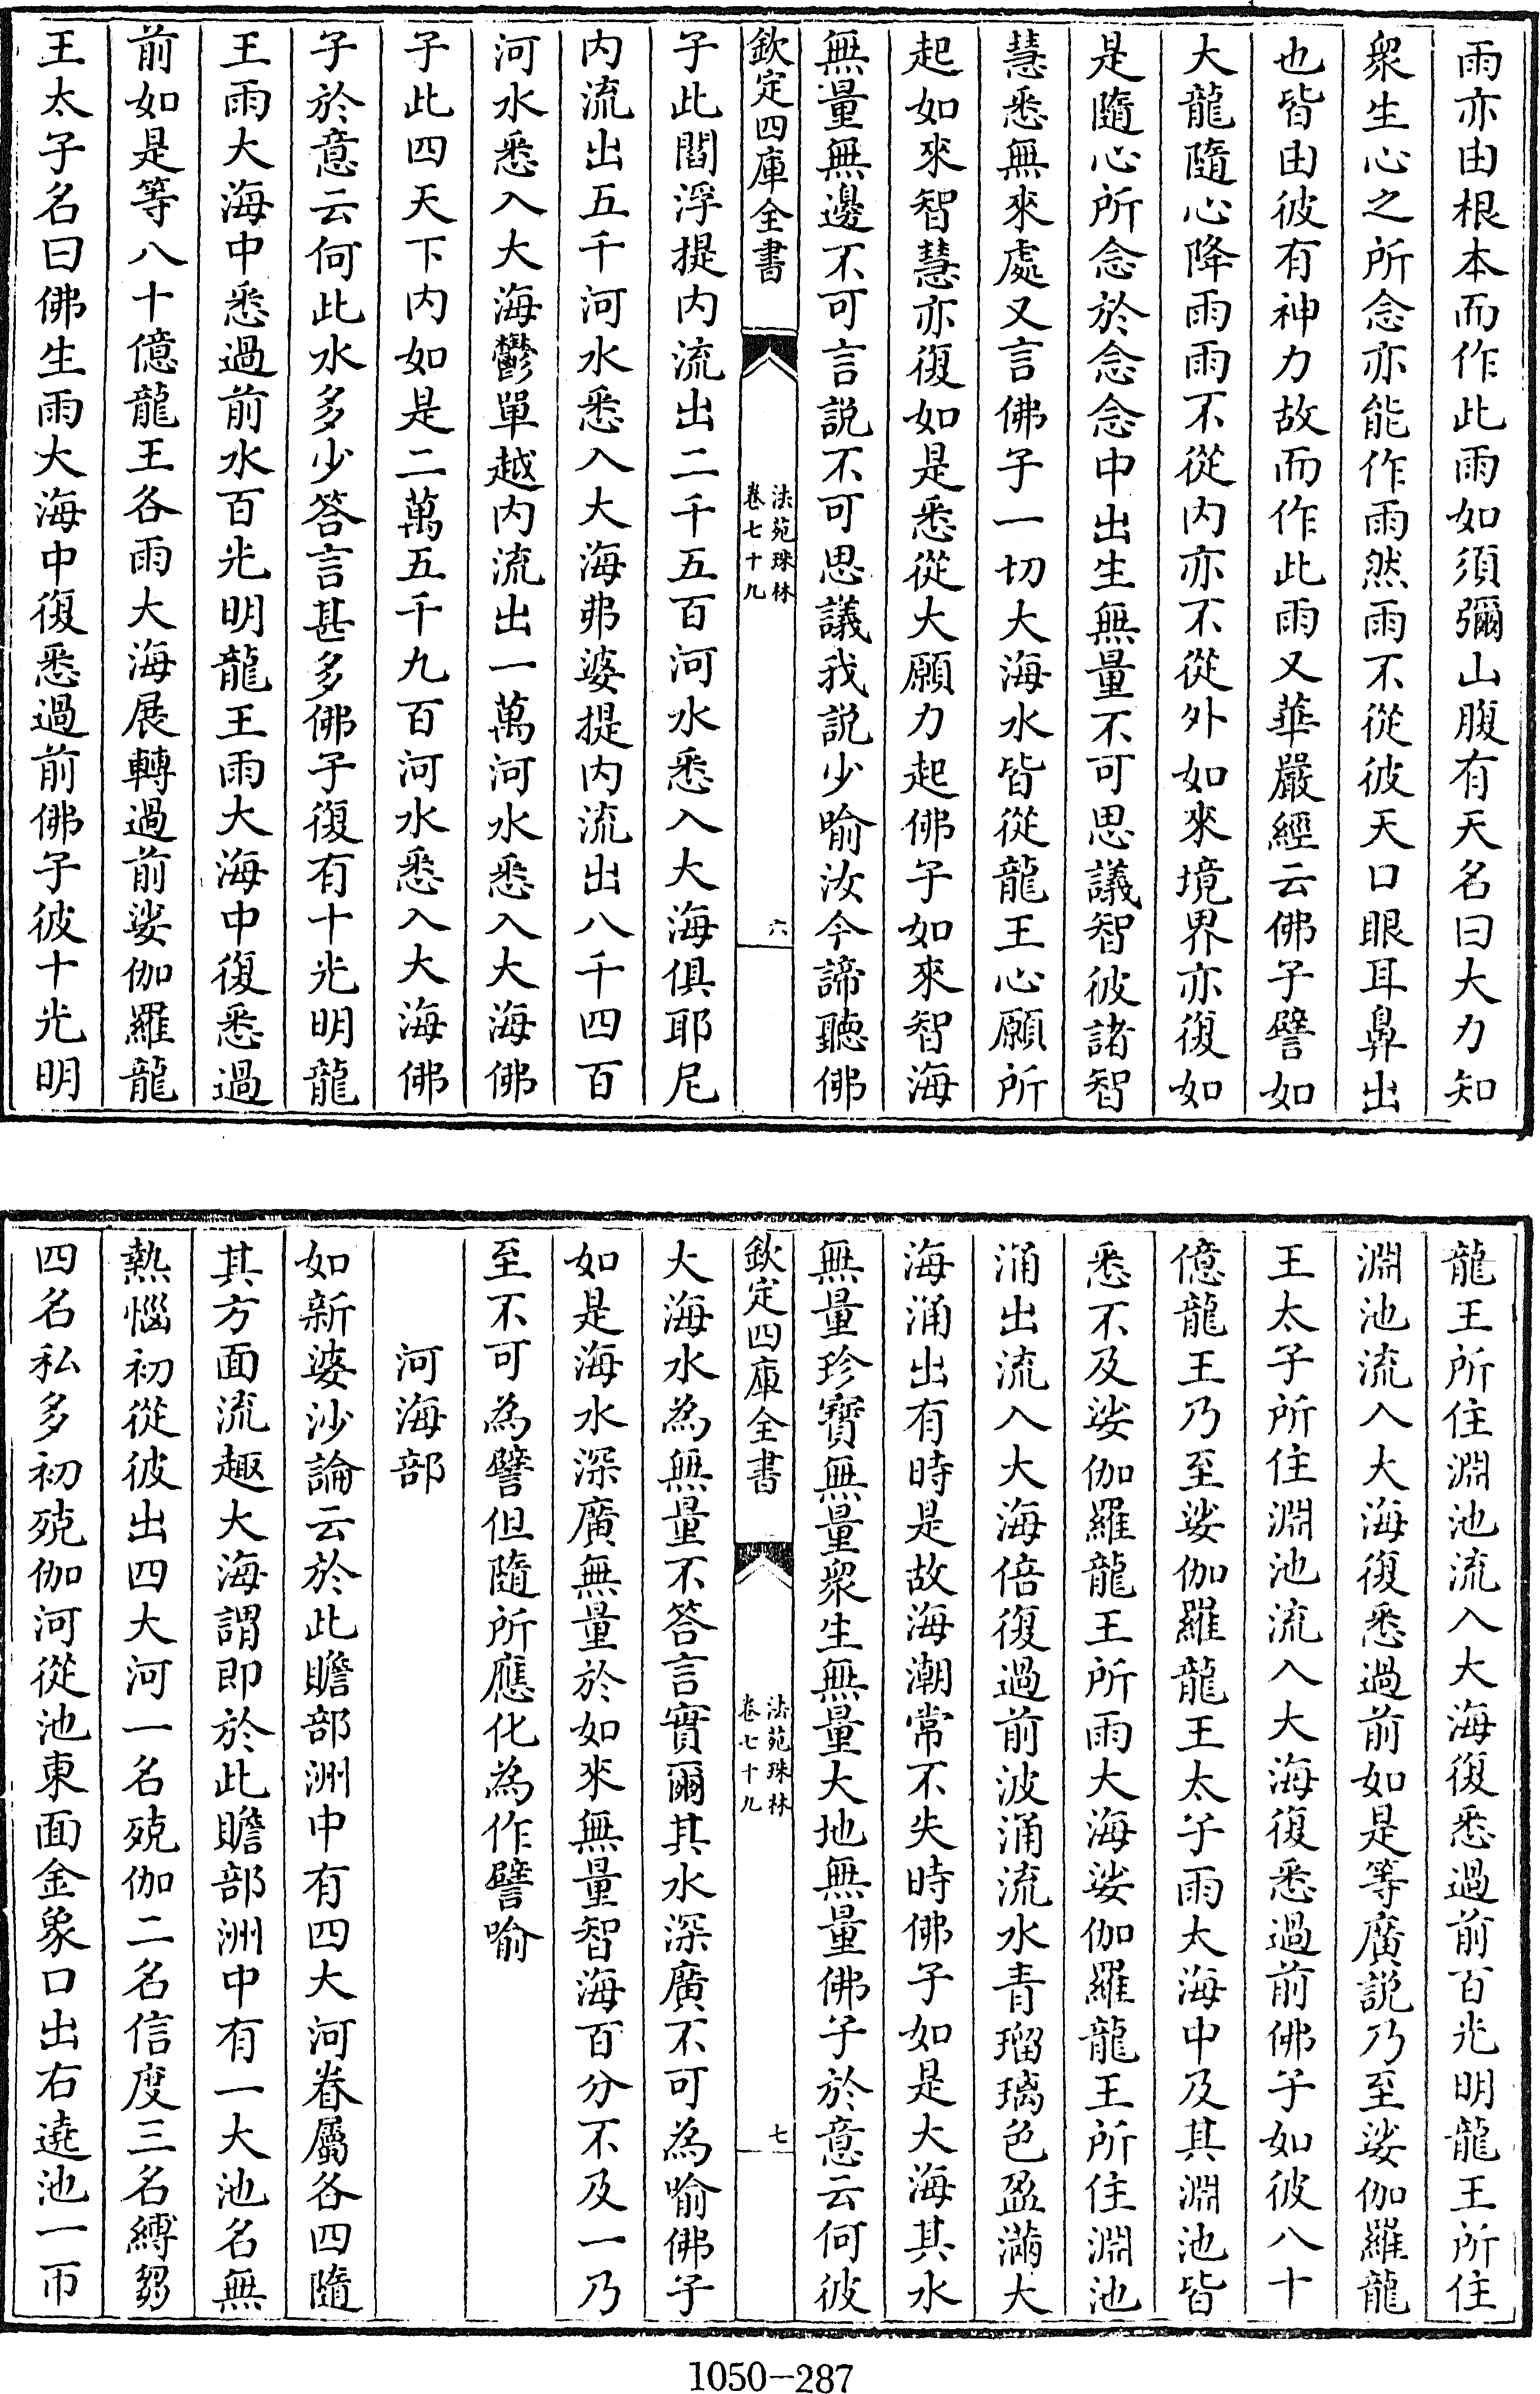 雨亦由根本而作此雨如須彌山腹有天名曰大力知
衆生心之所念亦能作雨然雨不從彼天口眼耳鼻出
也皆由彼有神力故而作此雨又華嚴經云佛子譬如
大龍隨心降雨雨不從内亦不從外如來境界亦復如
是隨心所念於念念中出生無量不可思議智彼諸智
慧悉無來處又言佛子一切大海水皆從龍王心願所
起如來智慧亦復如是悉從大願力起佛子如來智海
無量無邊不可言説不可思議我説少喻汝今諦聽佛
欽定四庫全書
法苑珠林
卷七十九
六
子此閻浮提内流出二千五百河水悉入大海俱耶尼
内流出五千河水悉入大海弗婆提内流出八千四百
河水悉入大海鬱單越内流出一萬河水悉入大海佛
子此四天下内如是二萬五千九百河水悉入大海佛
子於意云何此水多少答言甚多佛子復有十光明龍
王雨大海中悉過前水百光明龍王雨大海中復悉過
前如是等八十億龍王各雨大海展轉過前娑伽羅龍
王太子名曰佛生雨大海中復悉過前佛子彼十光明
龍王所住淵池流入大海復悉過前百光明龍王所住
淵池流入大海復悉過前如是等廣説乃至娑伽羅龍
王太子所住淵池流入大海復悉過前佛子如彼八十
億龍王乃至娑伽羅龍王太子雨大海中及其淵池皆
悉不及娑伽羅龍王所雨大海娑伽羅龍王所住淵池
涌出流入大海倍復過前波涌流水青瑠璃色盈滿大
海涌出有時是故海潮常不失時佛子如是大海其水
無量珍寶無量衆生無量大地無量佛子於意云何彼
欽定四庫全書
法苑珠林
卷七十九
七
大海水為無量不答言實爾其水深廣不可為喻佛子
如是海水深廣無量於如來無量智海百分不及一乃
至不可為譬但隨所應化為作譬喻
河海部
如新婆沙論云於此贍部洲中有四大河眷屬各四隨
其方面流趣大海謂即於此贍部洲中有一大池名無
熱惱初從彼出四大河一名殑伽二名信度三名縛芻
四名私多初殑伽河從池東面金象口出右遶池一帀
1050-287